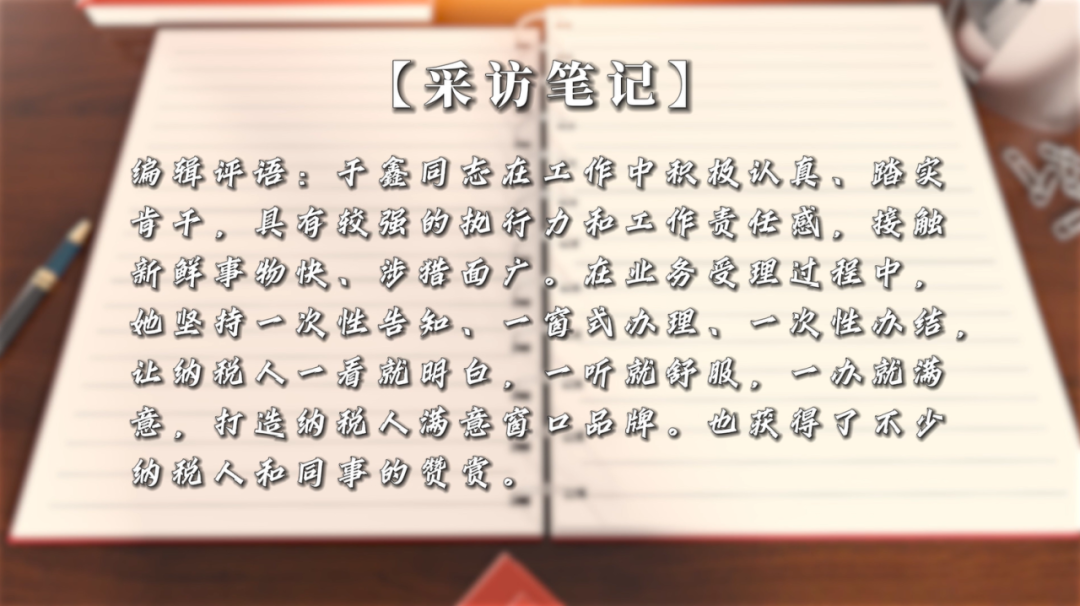 【采访笔记】
编辑评语：于鑫同志在工作中积极认真、踏实
肯干，具有较强的执行力和工作责任感，接触
新鲜事物快、涉猎面广。在业务受理过程中，
她坚持一次性告知、一窗式办理、一次性办结，
让纳税人一看就明白，一听就舒服，一办就满
意，打造纳税人满意窗口品牌。也获得了不少
纳税人和同事的赞赏。